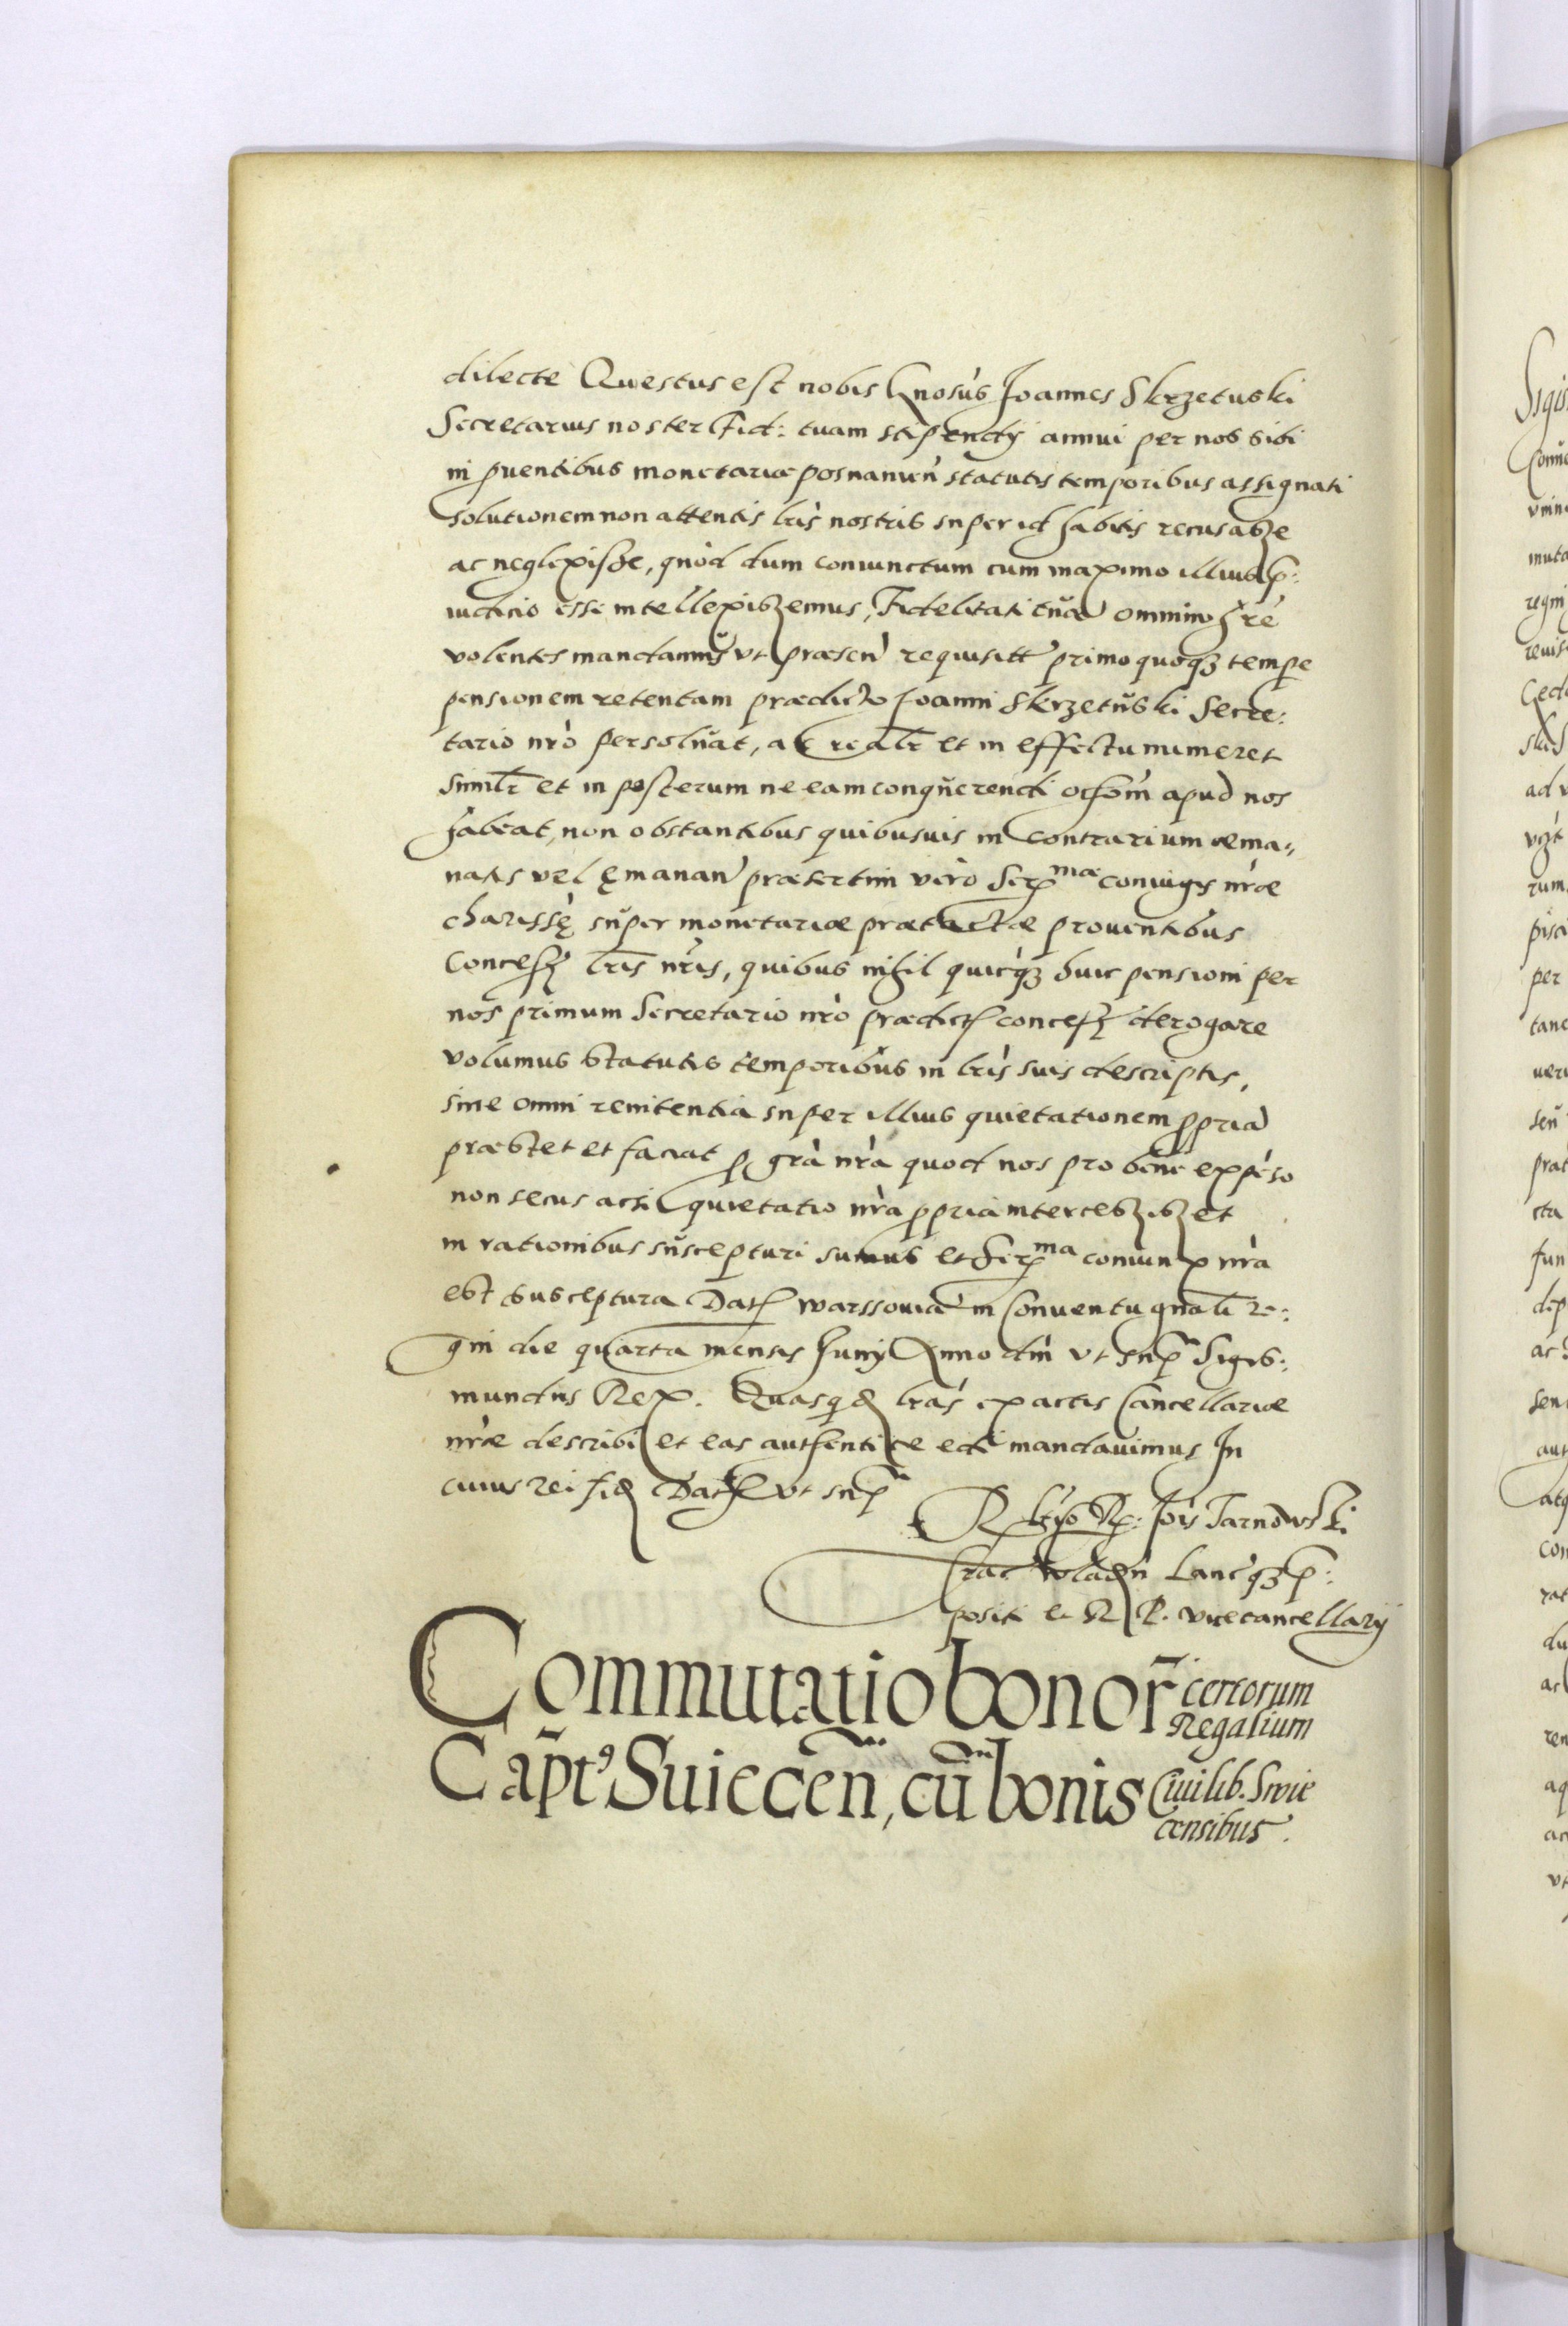 dilecte Questus est nobis Gnosùs Joannes Skrzetuski
Secretarius noster Fid: tuam stipendÿ annui per nos sibi
in puentibus monetariæ posnanien̄ statutis temporibus assignati
solutionem non attentis lr̀is nostris super id habitis recusasse
ac neglexisse, quòd dum coniunctum cum maximo illius p:
iudicio esse intellexissemus, Fidelitati tuæ omnino hr̀e
volentes mandamus vt præsen̄ requisitt primo quoqȝ tempe
pensionem retentam prædicto Joanni Skrzetŭski Secre:
tario nrò persolŭat, ac realr̄ et in effectu numeret
Similr̄ et in posterum ne eam conqŭerendi occōm apud nos
habeat, non obstantibus quibusuis in contrarium æma:
natis vel ęmanan̄ præsertim verò Ser^mæ coniugis nr̀æ
charissę sŭper monetariæ prætactæ prouentibus
Concess lr̄is nr̄is, quibus nihil quicqȝ huic pensioni per
nos primum Secretario nrò prædict concess derogare
volumus statutis temporibus in lr̀is suis descriptis,
sine omni renitentia super illius quietationem ppriā
præstet et faciat p grà nr̀a quod nos pro bene expēso
non secus acsi quietatio nr̀a ppria intercessisset
in rationibus sŭscepturi sumus et Ser^ma coniunx nr̀a
est susceptura Dat warssouiæ in Conuentu gnali re:
gni die quarta mensis Junÿ Anno dni vt sup Sigis:
mundus Rex. Quasqid lras ex actis Cancellariæ
nr̀æ describi et eas authentice edi mandauimus In
cuius rei fid Dat vt sup
R Jois Tarnowski
Crac wladn̄ Lancqȝ p:
positi & R P. vicecancellarÿ
Commutatio bonor̄ certorum
Regalium
Capt⁹ Suiecen̄, cū bonis Ciuilib. Swie
censibus.